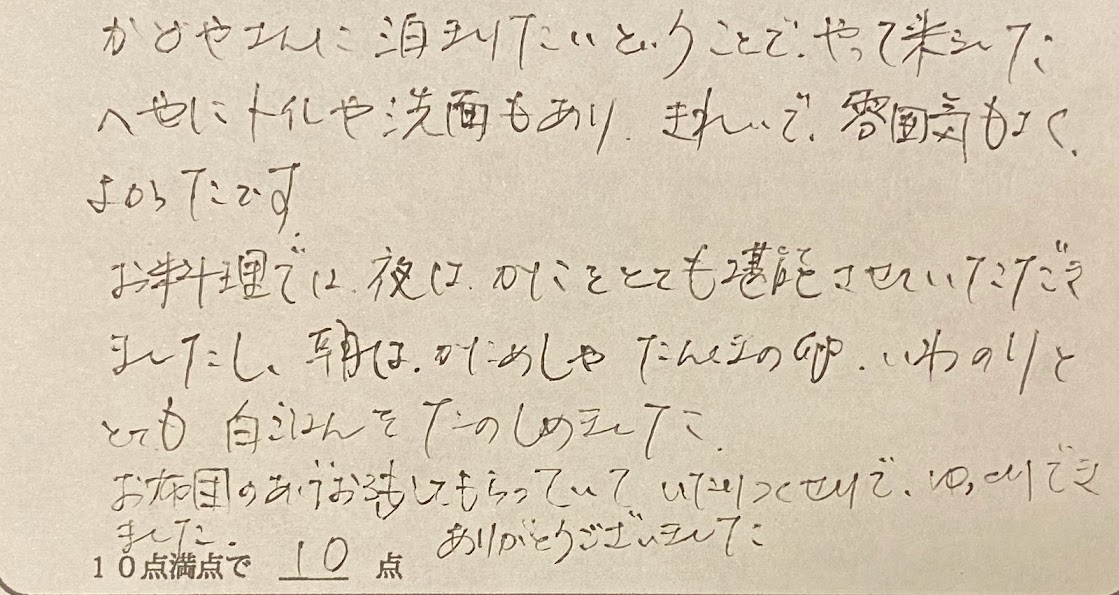 かどやさんに泊まりたいということで、やって来ました
へやにトイレや洗面もあり、きれいで、雰囲気もよく、
よかったです。
お料理では、夜は、かにをとても堪能させていただき
ましたし、朝は、かにめしや たんくまの卵、いわのりと
とても 白ごはんをたのしめました。
お布団のあげおろしもしてもらっていて いたりつくせりで、ゆっくりでき
ました。 ありがとうございました
10点満点で 10 点